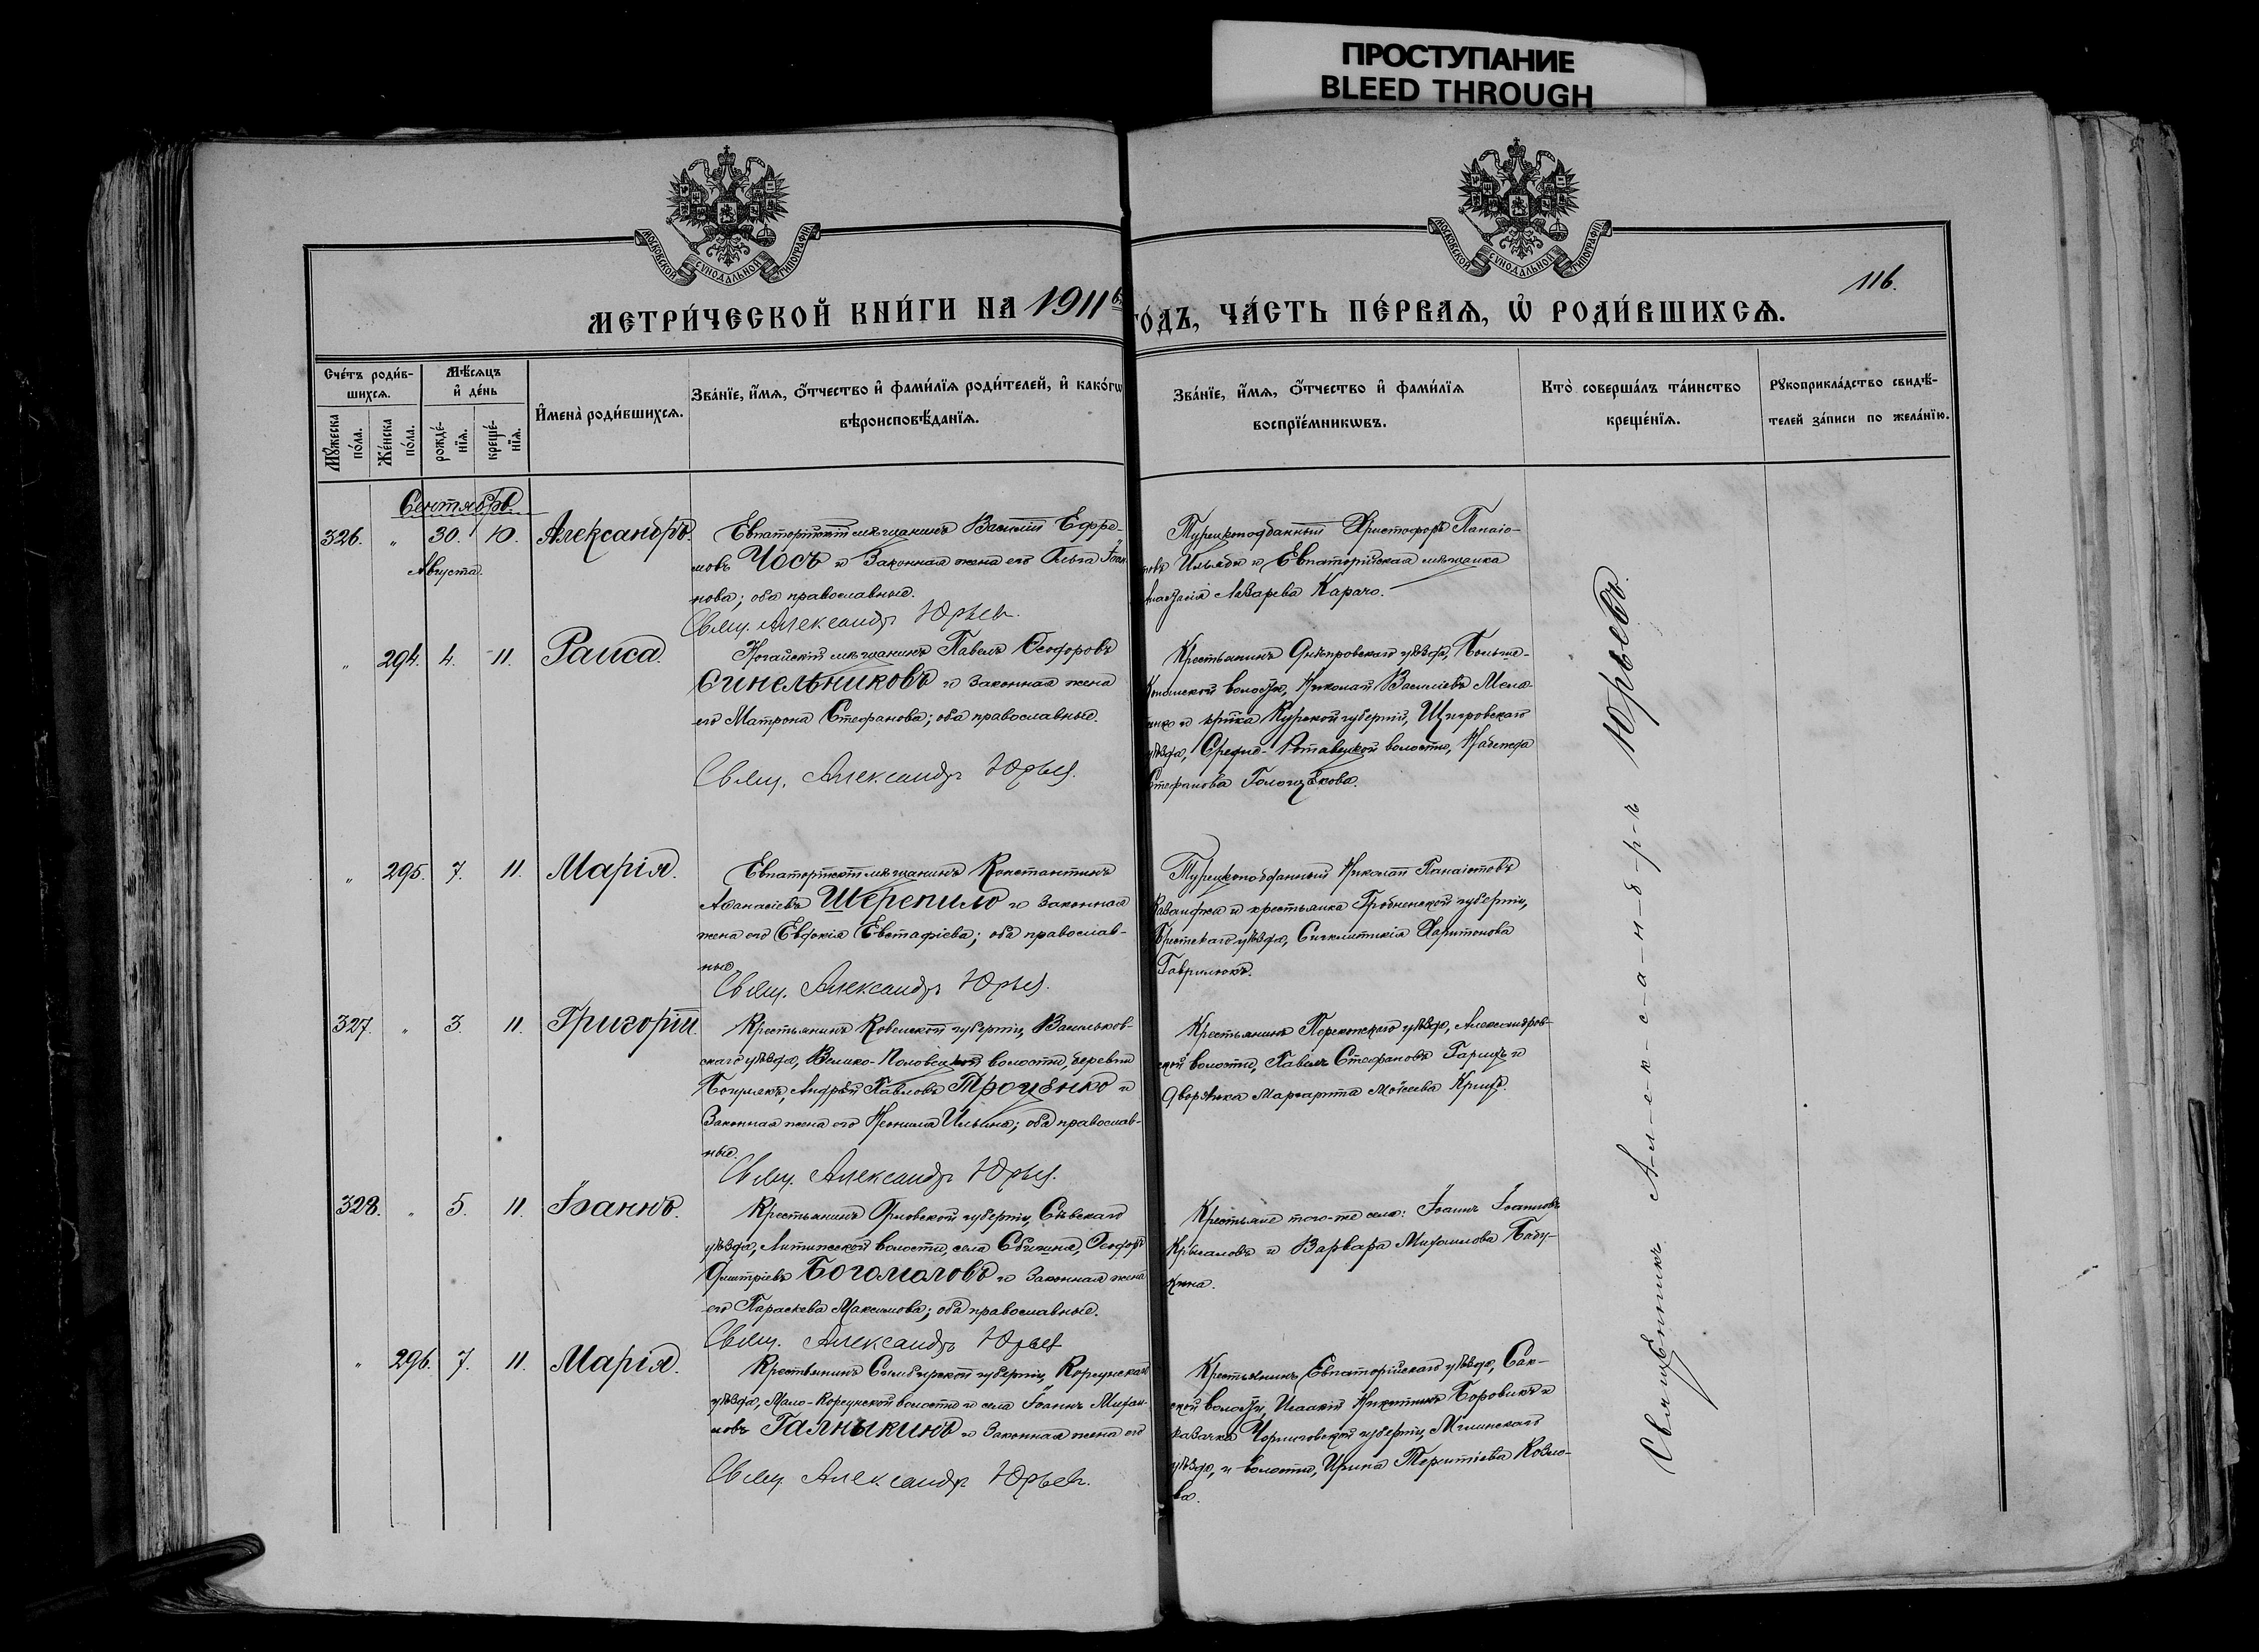 ПРОСТУПАНИЕ
BLEED THROUGH
МОСКОВСКОЙ СѴНОДАЛЬНОЙ ТИПОГРАФІИ
МОСКОВСКОЙ СѴНОДАЛЬНОЙ ТИПОГРАФІИ
116.
МЕТРИ́ЧЕСКОЙ КНИ́ГИ НА 1911 ГО́ДЪ, ЧА́СТЬ ПЕ́РВАѦ, Ѡ҆ РОДИ́ВШИХСѦ.
Сче́тъ роди́в-
шихсѧ.
Мꙋ́жеска по́ла.
Же́нска по́ла.
Мѣ́сѧцъ
и҆ де́нь
рожде́-
нїѧ.
креще́-
нїѧ.
И҆мена̀ роди́вшихсѧ.
Зва́нїе, и҆́мѧ, ѻ҆́тчество и҆ фами́лїѧ роди́телей, и҆ како́гѡ
вѣроисповѣ́данїѧ.
Зва́нїе, и҆́мѧ, ѻ҆́тчество и҆ фами́лїѧ
воспрїе́мникѡвъ.
Кто̀ соверша́лъ та́инство
креще́нїѧ.
Рꙋкоприкла́дство свидѣ́-
телей за́писи по жела́нїю.
Сентябрь
326. " 30. 10. Александръ. Евпаторійскій мѣщанинъ Василій Ефре-
Августа.
мовъ Чосъ и законная жена его Ольга Іоан-
нова; оба православные.
Свящ. Александръ Юрьев.
Турецкоподданный Христофоръ Панаіо-
товъ Ильяди и Евпаторійская мѣщанка
Анастасія Лазарева Карачо.
" 294. 4. 11. Раиса. Ногайскій мѣщанинъ Павелъ Ѳеодоровъ
Синельниковъ и законная жена
его Матрона Стефанова; оба православные.
Свящ. Александръ Юрьев.
Крестьянинъ Днѣпровскаго уѣзда, Больше-
Копанской волости, Николай Васильевъ
и Курской губерніи, Щигровскаго
уѣзда, Средне- волости, Надежда
Стефанова
" 295. 7. 11. Марія. Евпаторійскій мѣщанинъ Константинъ
Аѳанасіевъ Шерепило и законная
жена его Евдокія Евстафіева; оба православ-
ные
Свящ. Александръ Юрьев.
Турецкоподданный Николай Панаіотовъ
Казанджи и крестьянка Гродненской губерніи,
Брестскаго уѣзда, Харитонова
Гаврилюкъ.
327. " 3. 11. Григорій. Крестьянинъ Кіевской губерніи, Васильков-
скаго уѣзда, Велико-Половецкой волости, деревни
Андрей Павловъ Троценко и
законная жена его Неонила Ильина; оба православ-
ные.
Свящ. Александръ Юрьев.
Крестьянинъ Перекопскаго уѣзда, Александров-
ской волости, Павелъ Стефановъ и
дворянка Маргарита Моисеева
328. " 5. 11. Іоаннъ. Крестьянинъ Орловской губерніи, Сѣвскаго
уѣзда, волости, села Ѳеодоръ
Димитріевъ Богомоловъ и законная жена
его Параскева Максимова; оба православные.
Свящ. Александръ Юрьев
Крестьяне того-же села: Іоаннъ Іоанновъ
и Варвара Михаилова Бабу-
кина.
" 296. 7. 11. Марія. Крестьянинъ Симбирской губерніи, Корсунскаго
уѣзда, Мало-Корсунской волости и села Іоаннъ Михаи-
ловъ Галныкинъ и законная жена его
Свящ. Александръ Юрьев.
Крестьянинъ Евпаторійскаго уѣзда, Сак-
ской волости, Исаакій Никитинъ Боровикъ и
казачка Черниговской губерніи, Мглинскаго
уѣзда, и волости, Ирина Терентіева Козло-
ва.
Священникъ А-л-е-к-с-а-н-д-р-ъ Юрьевъ.